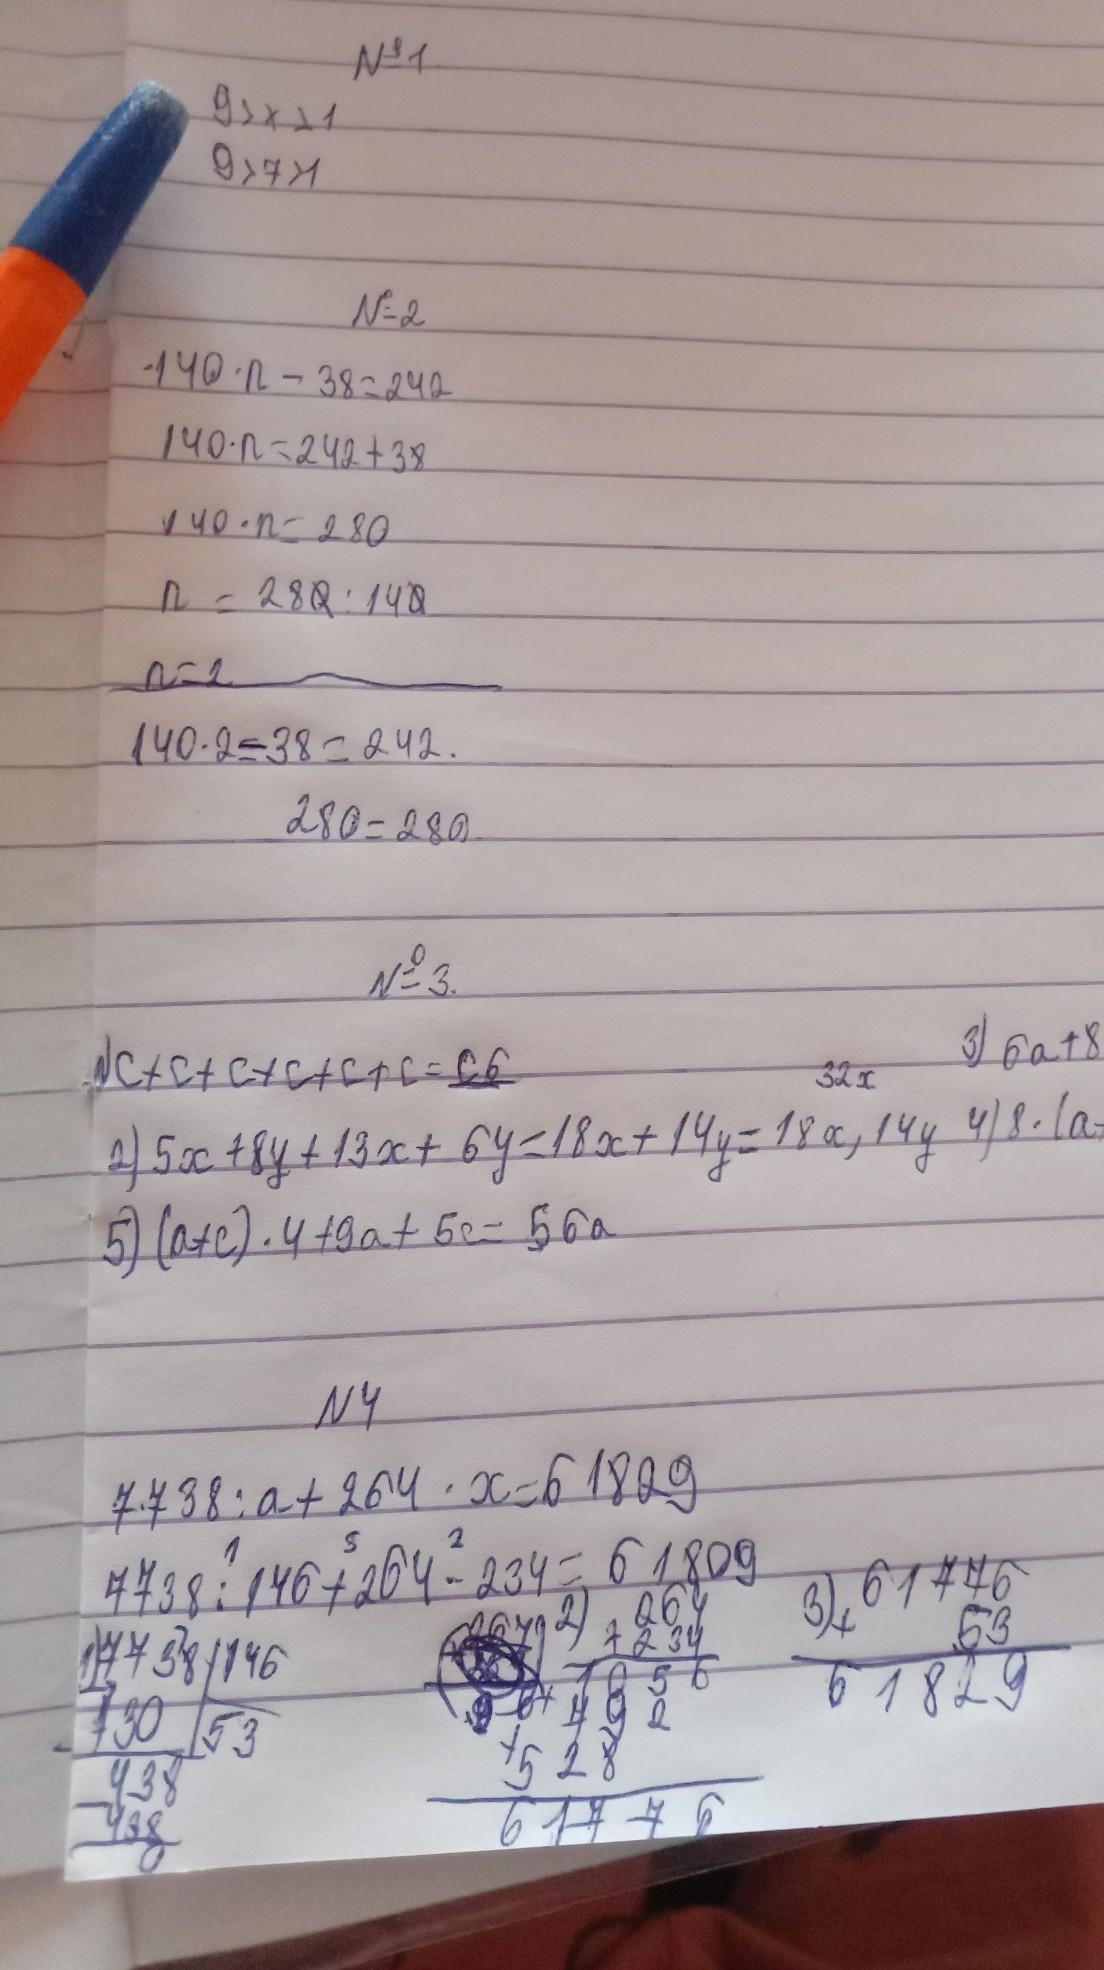 №1
9>x>1
9>7>1
№2
140·n-38=242
140·n=242+38
140·n=280
n=280:140
n=2
140·2-38=242.
280=280
№3.
1) c+c+c+c+c+c=c6
32x
3) 6a+8
2) 5x+8y+13x+6y=18x+14y=18x,14y 4) 8·(a+
5) (a+c)·4+9a+5c=56a
N4
7.738:a+264·x=61829
1 3 2
7738:146+264·234=61809
1) 7738 146 2) 264 3) +61776
730 53 234 53
438 1056 61829
438 792
0 +528
61776